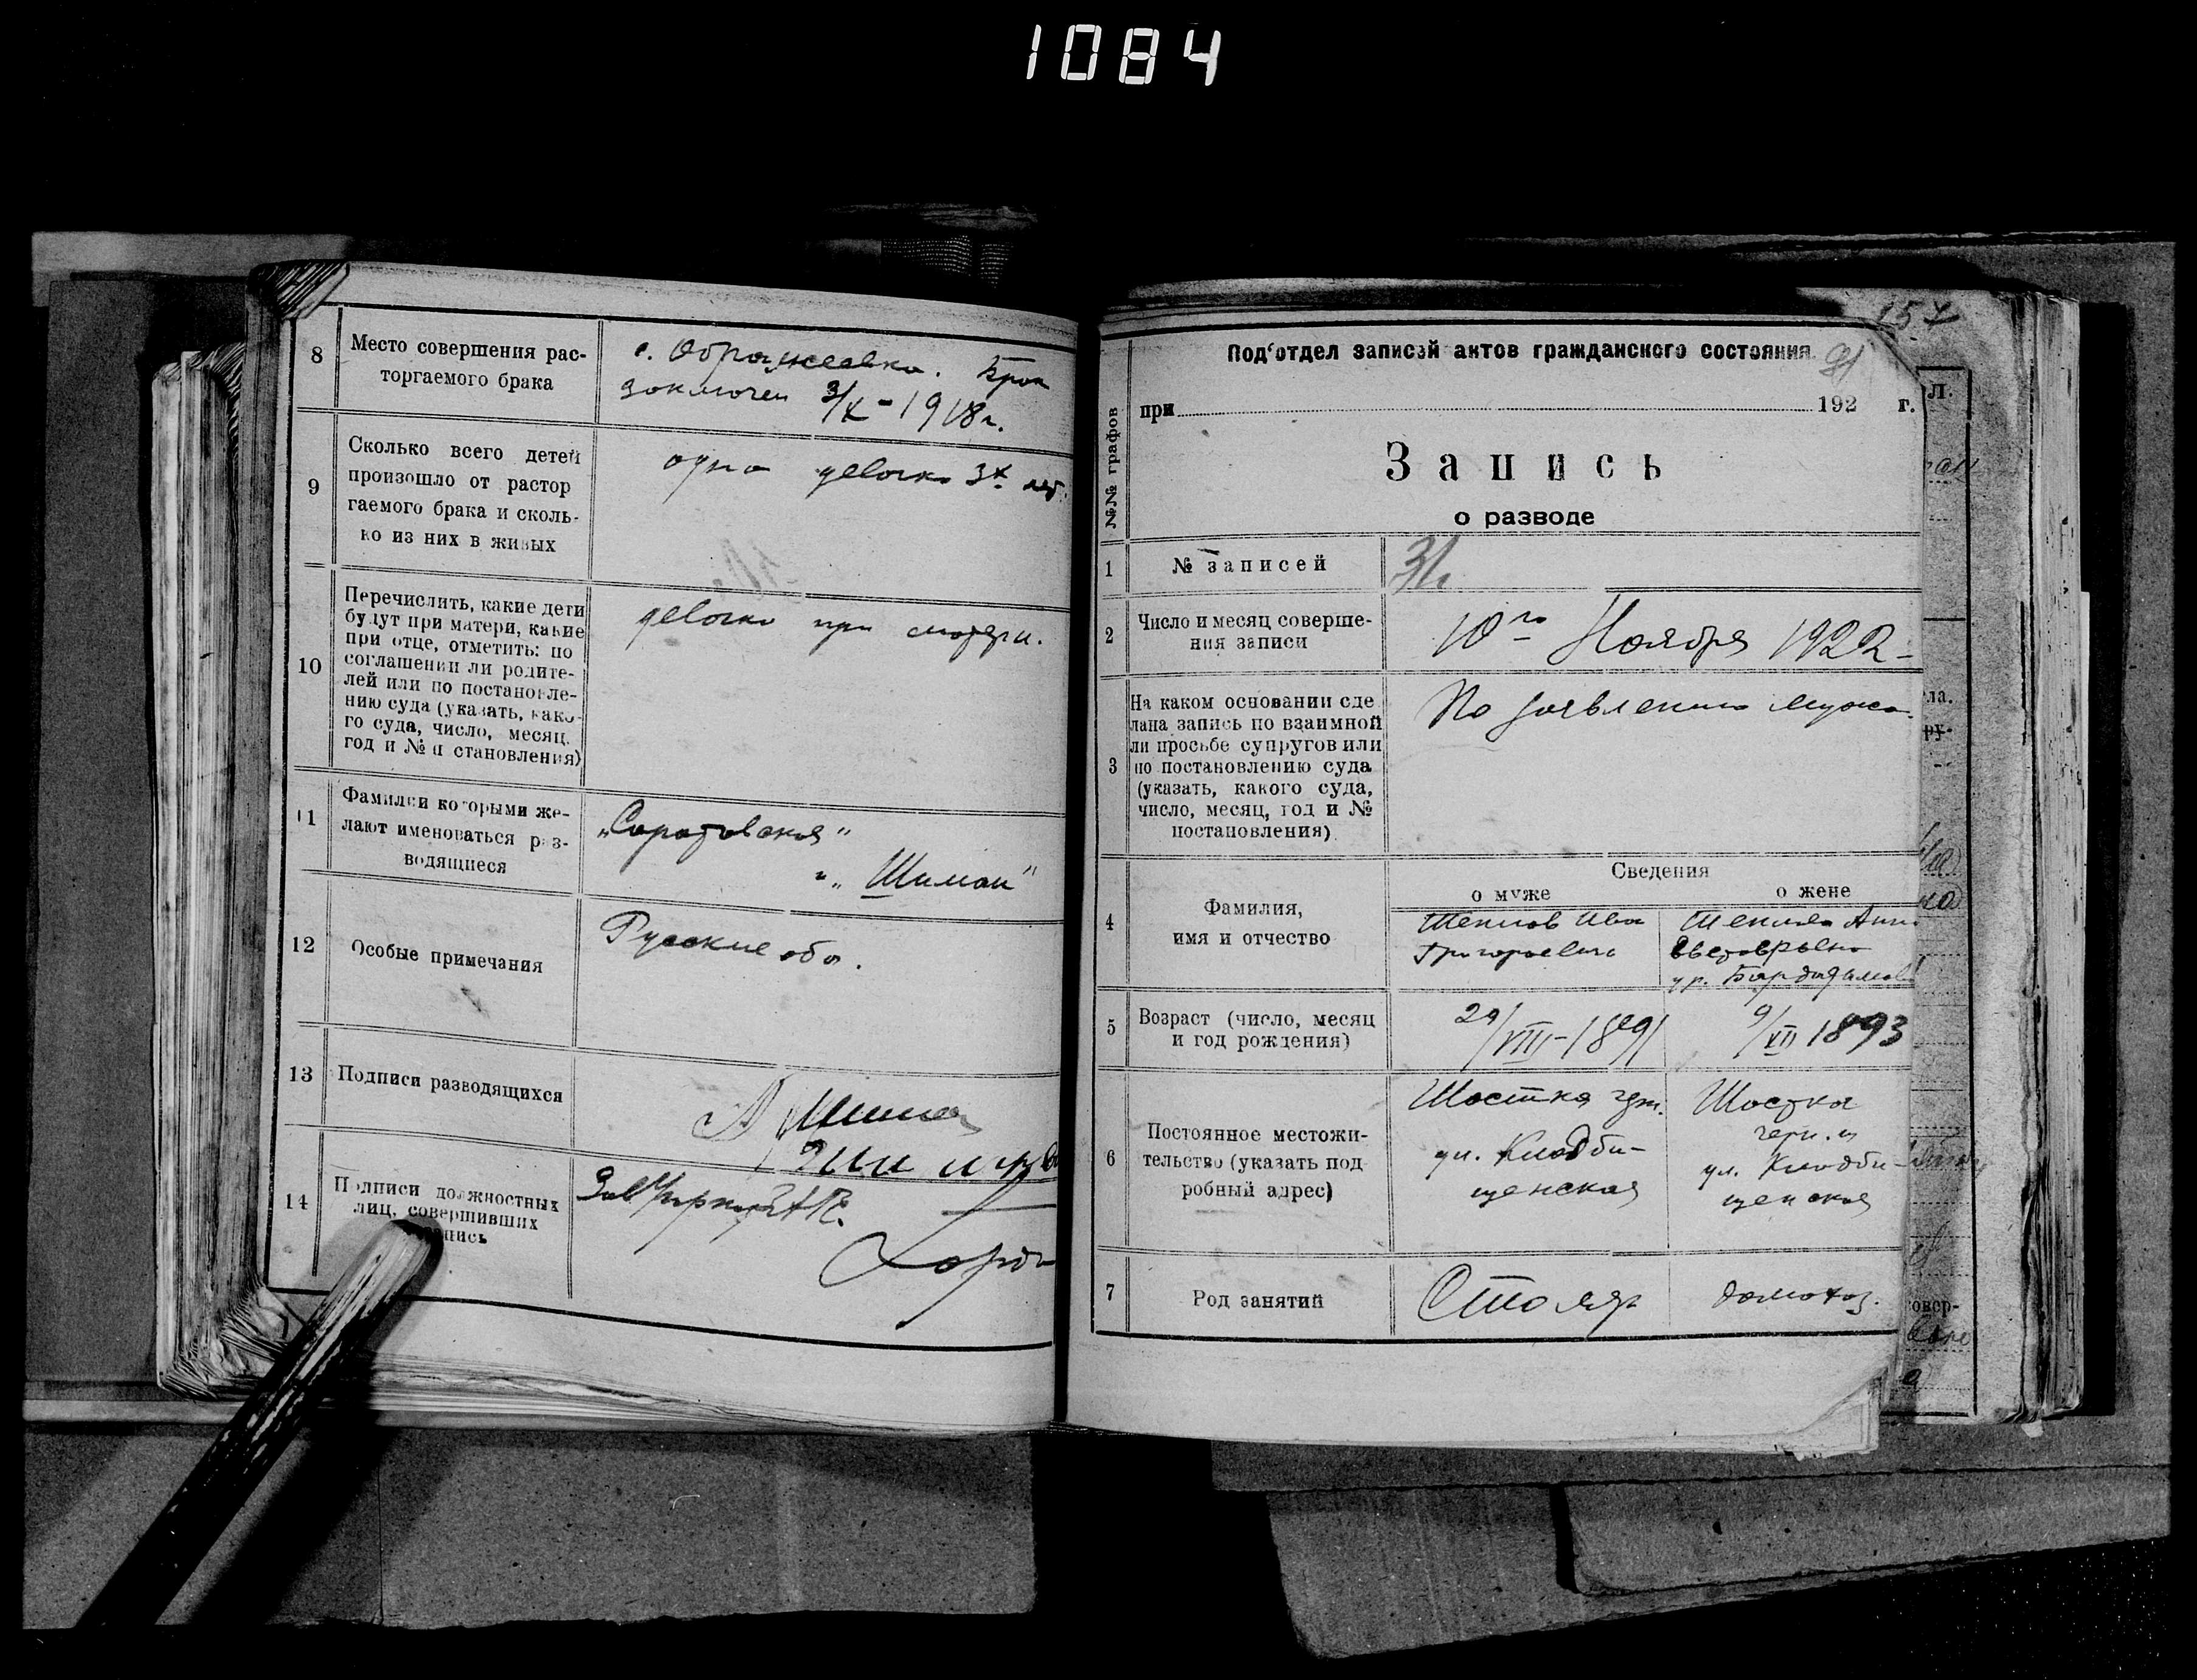 1084
8
Место совершения рас-
торгаемого брака
с. Ображеевка. Брак
заключен 3/X-1918г.
9
Сколько всего детей
произошло от растор
гаемого брака и сколь-
ко из них в живых
одна девочка 3х лет.
10
Перечислить, какие дети
будут при матери, какие
при отце, отметить: по
соглашении ли родите-
лей или по постановле-
нию суда (указать, како-
го суда, число, месяц,
год и № п становления)
девочка при матери.
11
Фамилии которыми же-
лают именоваться раз-
водящиеся
„Саратовская"
„Шиман"
12
Особые примечания
Русские оба.
13
Подписи разводящихся
14
Подписи должностных
лиц, совершивших
запись
157
Под'отдел записей актов гражданского состояния
при 192 г.
№№ графов
Запись
о разводе
1
№ записей
31
2
Число и месяц соверше-
ния записи
10го Ноября 1922
3
На каком основании сде
лана запись по взаимной
ли просьбе супругов или
по постановлению суда
(указать, какого суда,
число, месяц, год и №
постановления)
По заявлению мужа.
Сведения
о муже
о жене
4
Фамилия,
имя и отчество
Григорьевич
ур.
5
Возраст (число, месяц
и год рождения)
29/VIII-1891
9/XII 1893
6
Постоянное местожи-
тельство (указать под
робный адрес)
Шостка
ул. Кладби-
щенская
Шостка
ул. Кладби-
щенская
7
Род занятий
Столяр
домохоз.